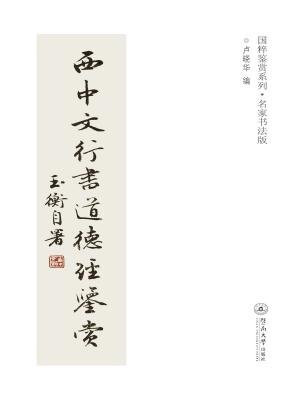 国粹鉴赏系列·名家书法版
◎卢晓华 编
西中文行書道德经鑒赏
玉衡自署
暨南大學出版社